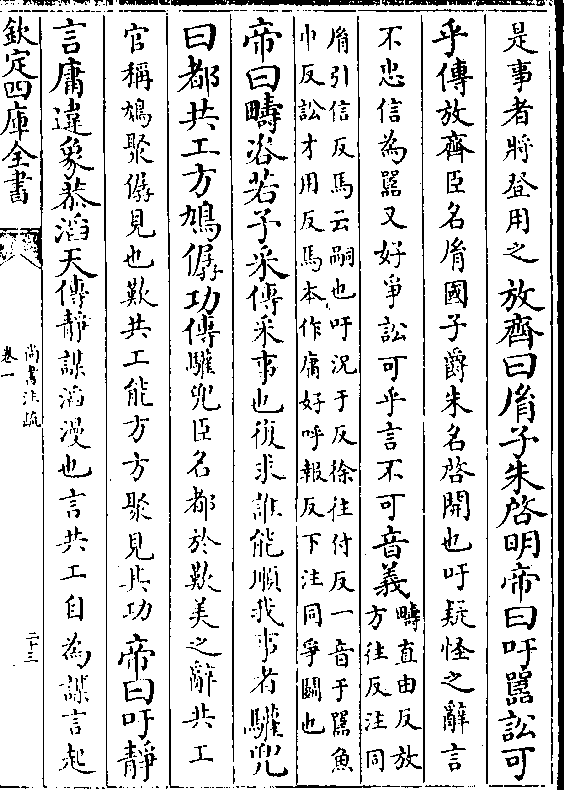 是事者將登用之放齊曰胤子朱啓明帝曰吁嚚訟可
乎傳放齊臣名胤國子爵朱名啓開也吁疑怪之辭言
不忠信為嚚又好爭訟可乎言不可音義疇直由反放
方往反注同
胤引信反馬云嗣也吁況于反徐往付反一音于嚚魚
巾反訟才用反馬本作庸好呼報反下注同爭鬭也
帝曰疇咨若予采傳采事也復求誰能順我事者驩兜
曰都共工方鳩僝功傳驩兜臣名都於歎美之辭共工
官稱鳩聚僝見也歎共工能方方聚見其功帝曰吁靜
言庸違象恭滔天傳靜謀滔漫也言共工自為謀言起
欽定四庫全書
尚書注疏
卷一
二十三